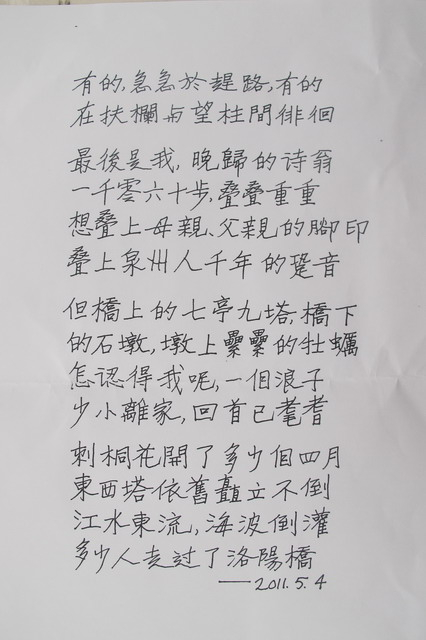 有的,急急於趕路,有的
在扶欄与望柱間徘徊
最後是我,晚歸的诗翁
一千零六十步,叠叠重重
想叠上母親、父親的腳印
叠上泉州人千年的跫音
但橋上的七亭九塔,橋下
的石墩,墩上纍纍的牡蠣
怎認得我呢,一個浪子
少小離家,回首已耄耆
刺桐花開了多少個四月
東西塔依舊矗立不倒
江水東流,海波倒灌
多少人走过了洛陽橋
——2011.5.4